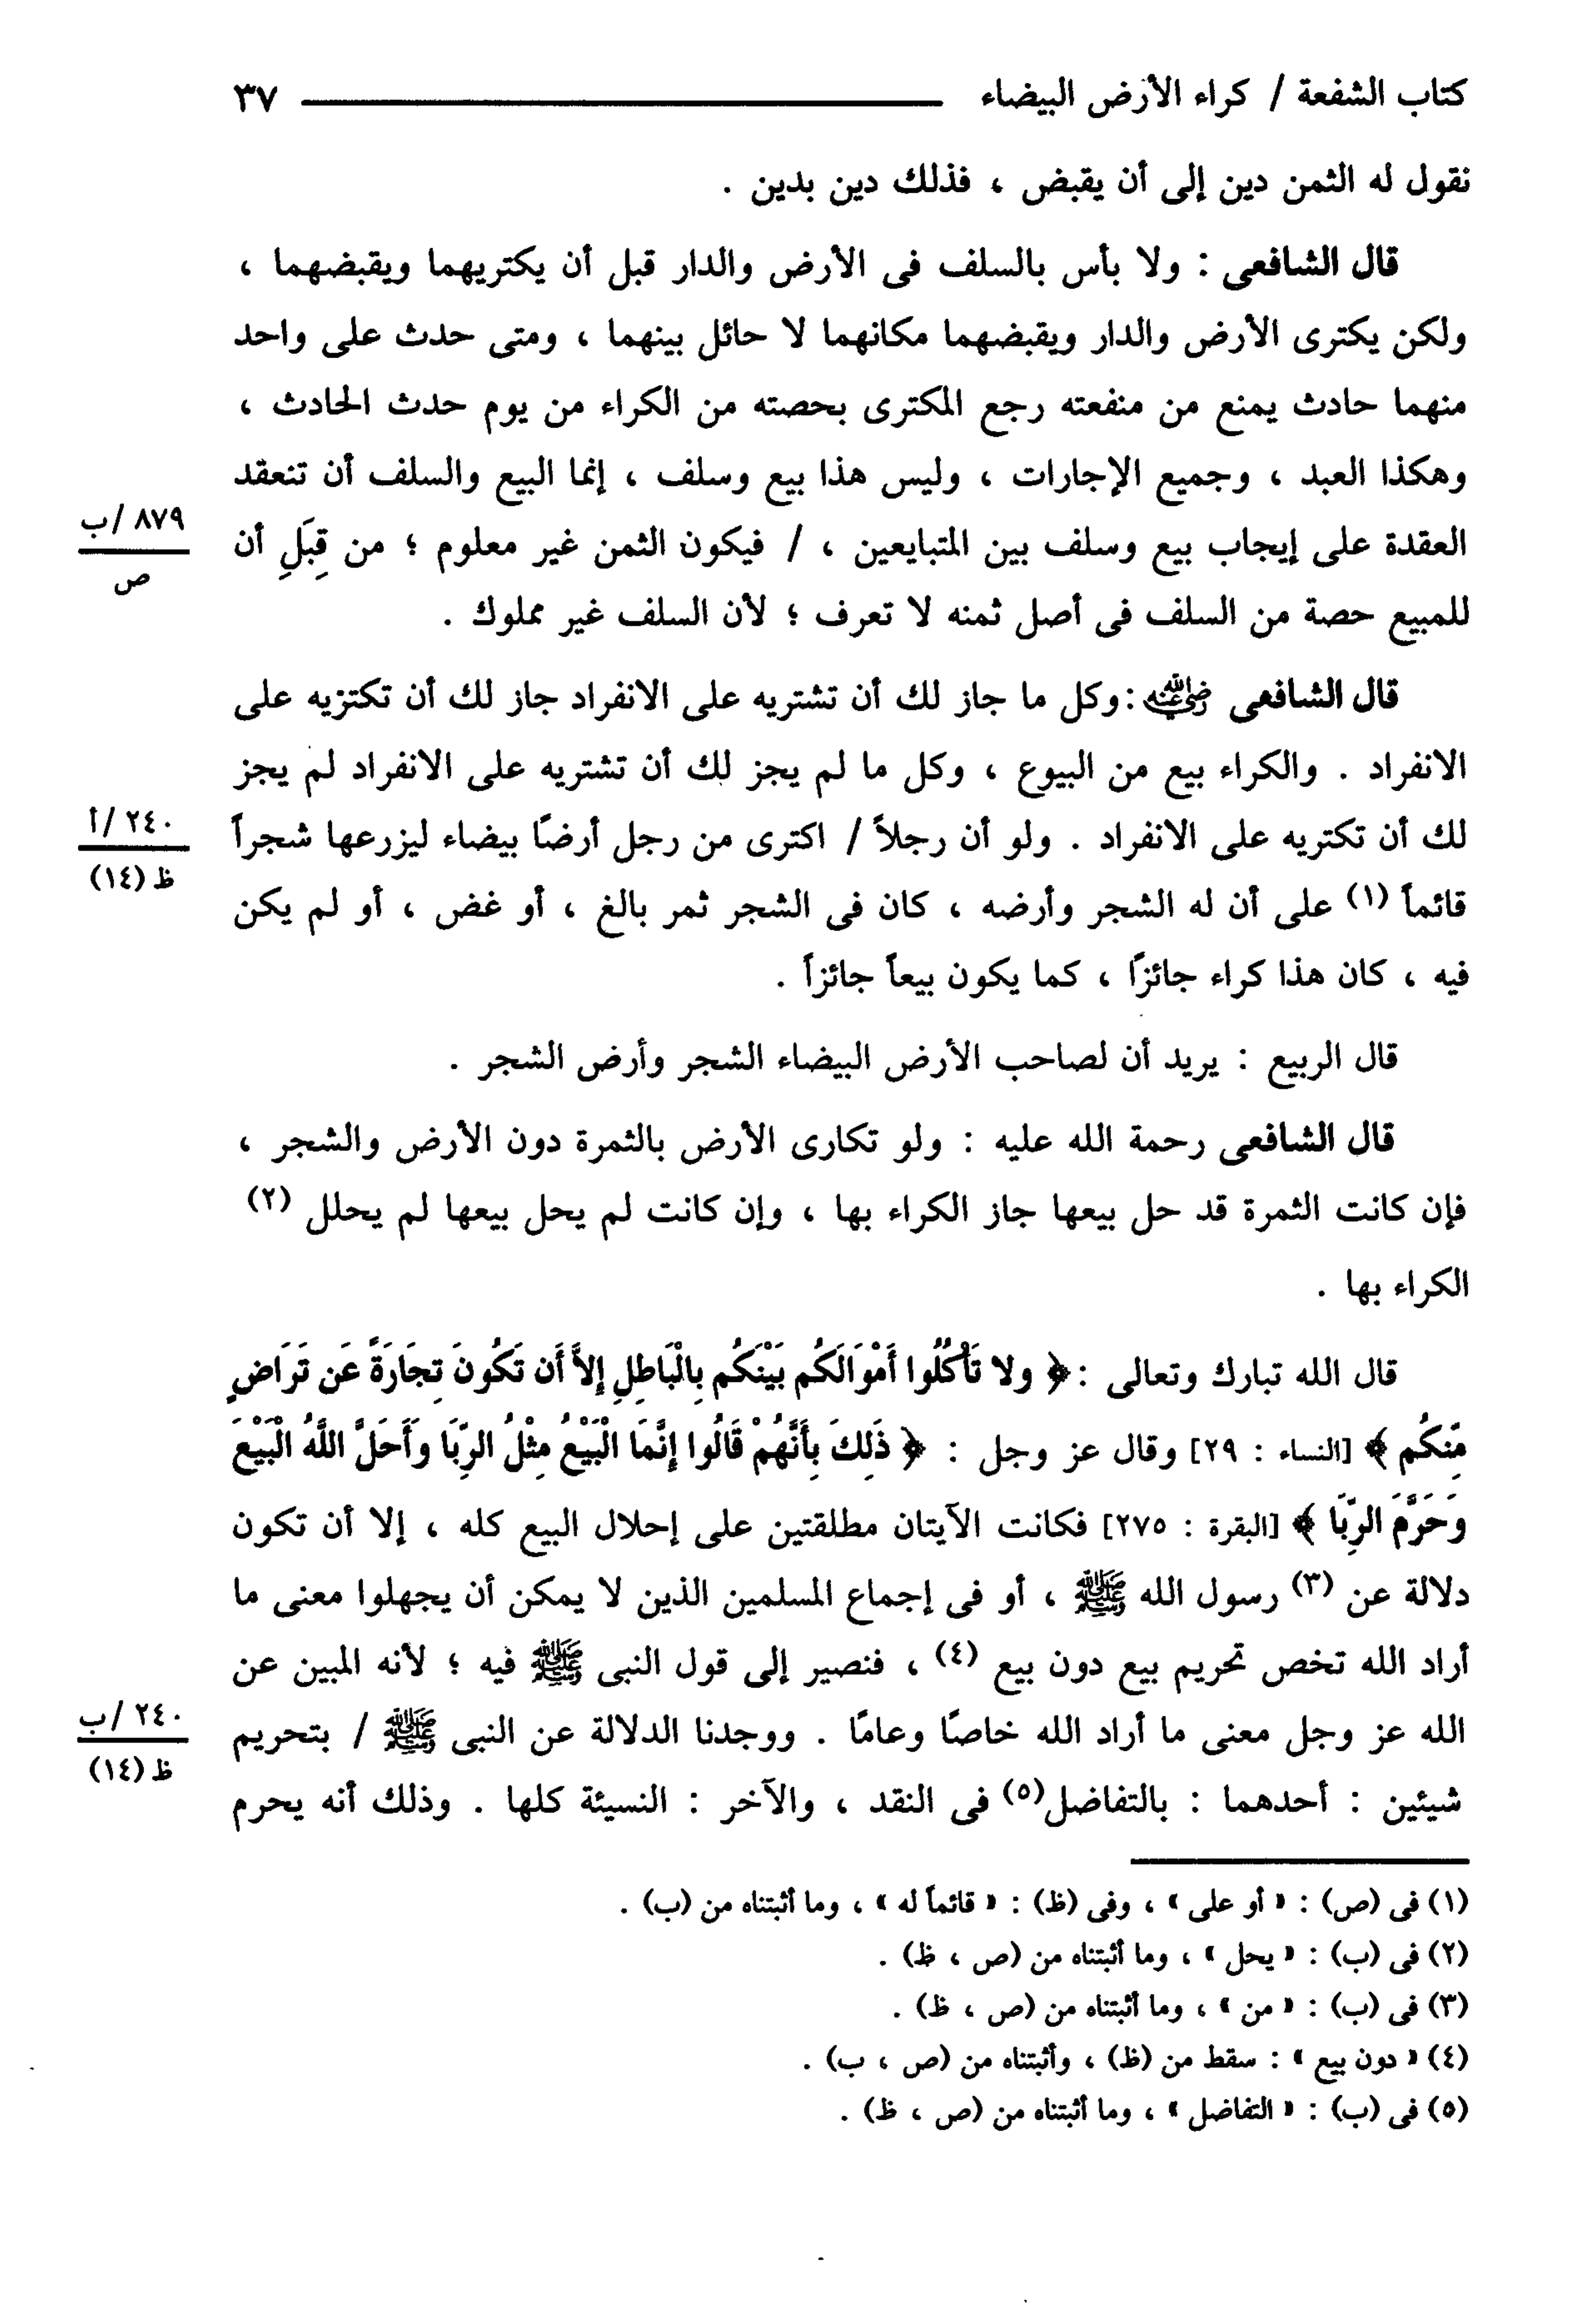 كتاب الشفعة / كراء الأرض البيضاء ــــــــــــــــ ٣٧
نقول له الثمن دين إلى أن يقبض ، فذلك دين بدين .
قال الشافعى : ولا بأس بالسلف فى الأرض والدار قبل أن يكتريهما ويقبضهما ،
ولكن يكترى الأرض والدار ويقبضهما مكانهما لا حائل بينهما ، ومتى حدث على واحد
منهما حادث يمنع من منفعته رجع المكترى بحصته من الكراء من يوم حدث الحادث ،
وهكذا العبد ، وجميع الإجارات ، وليس هذا بيع وسلف ، إنما البيع والسلف أن تنعقد
العقدة على إيجاب بيع وسلف بين المتبايعين ، / فيكون الثمن غير معلوم ؛ من قِبَلِ أن
٨٧٩ /ب
ص
للمبيع حصة من السلف فى أصل ثمنه لا تعرف ؛ لأن السلف غير مملوك .
قال الشافعى رضي الله عنه : وكل ما جاز لك أن تشتريه على الانفراد جاز لك أن تكتريه على
الانفراد . والكراء بيع من البيوع ، وكل ما لم يجز لك أن تشتريه على الانفراد لم يجز
لك أن تكتريه على الانفراد . ولو أن رجلاً / اكترى من رجل أرضًا بيضاء ليزرعها شجراً
٢٤٠ /أ
ظ (١٤)
قائماً (١) على أن له الشجر وأرضه ، كان فى الشجر ثمر بالغ ، أو غض ، أو لم يكن
فيه ، كان هذا كراء جائزًا ، كما يكون بيعاً جائزاً .
قال الربيع : يريد أن لصاحب الأرض البيضاء الشجر وأرض الشجر .
قال الشافعى رحمة الله عليه : ولو تكارى الأرض بالثمرة دون الأرض والشجر ،
فإن كانت الثمرة قد حل بيعها جاز الكراء بها ، وإن كانت لم يحل بيعها لم يحلل (٢)
الكراء بها .
قال الله تبارك وتعالى : ﴿ ولا تَأْكُلُوا أَمْوَالَكُم بَيْنَكُم بِالْبَاطِلِ إِلاَّ أَن تَكُونَ تِجَارَةً عَن تَرَاضٍ
مِّنكُم ﴾ [النساء : ٢٩] وقال عز وجل : ﴿ ذَلِكَ بِأَنَّهُمْ قَالُوا إِنَّمَا الْبَيْعُ مِثْلُ الرِّبَا وَأَحَلَّ اللَّهُ الْبَيْعَ
وَحَرَّمَ الرِّبَا ﴾ [البقرة : ٢٧٥] فكانت الآيتان مطلقتين على إحلال البيع كله ، إلا أن تكون
دلالة عن (٣) رسول الله ﷺ ، أو فى إجماع المسلمين الذين لا يمكن أن يجهلوا معنى ما
أراد الله تخص تحريم بيع دون بيع (٤) ، فنصير إلى قول النبى ﷺ فيه ؛ لأنه المبين عن
الله عز وجل معنى ما أراد الله خاصًا وعامًا . ووجدنا الدلالة عن النبى ﷺ / بتحريم
٢٤٠ /ب
ظ (١٤)
شيئين : أحدهما : بالتفاضل(٥) فى النقد ، والآخر : النسيئة كلها . وذلك أنه يحرم
(١) فى (ص) : « أو على » ، وفى (ظ) : « قائماً له » ، وما أثبتناه من (ب) .
(٢) فى (ب) : « يحل » ، وما أثبتناه من (ص ، ظ) .
(٣) فى (ب) : « من » ، وما أثبتناه من (ص ، ظ) .
(٤) « دون بيع » : سقط من (ظ) ، وأثبتناه من (ص ، ب) .
(٥) فى (ب) : « التفاضل » ، وما أثبتناه من (ص ، ظ) .